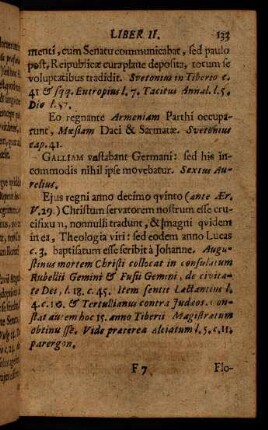 LIBER II. 133
menti, cum Senatu communicabat, sed paulo
post, Reipublicæ cura plane deposita, totum se
voluptatibus tradidit. Svetonius in Tiberio c.
41 & sqq. Eutropius l. 7. Tacitus Annal. l. 5,
Dio l. 57.
Eo regnante Armeniam Parthi occupa-
runt, Mœsiam Daci & Sarmatæ. Svetonius
cap. 41.
GALLIAM vastabant Germani: sed his in-
commodis nihil ipse movebatur. Sextus Au-
relius.
Ejus regni anno decimo qvinto (ante Ær.
V. 29.) Christum servatorem nostrum esse cru-
cifixum, nonnulli tradunt, & magni qvidem
in ea, Theologia viri: sed eodem anno Lucas
c. 3. baptisatum esse scribit à Johanne. Augu-
stinus mortem Christi collocat in consulatum
Rubellii Gemini & Fusii Gemini, de civita-
te Dei, l. 18. c. 45. Item sentit Lactantius l.
4. c. 10. & Tertullianus contra Judæos. con-
stat autem hoc 15. anno Tiberii Magistratum
obtinuisse. Vide præterea Alciatum l. 5, c. 11,
parergon.
F 7 Flo-